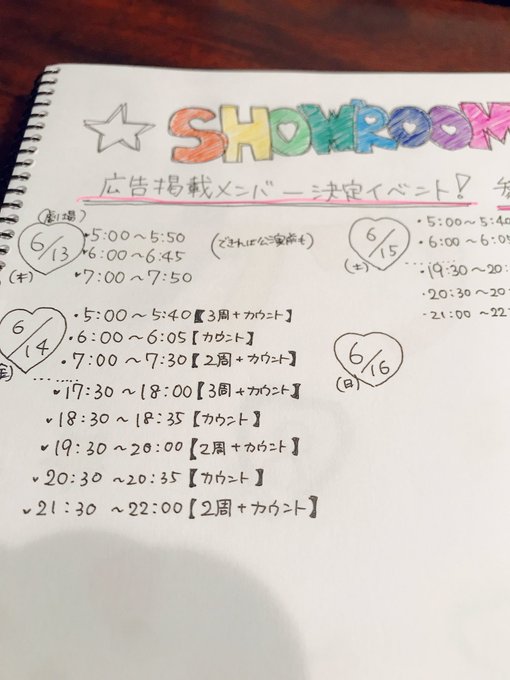 ☆ SHOWROOM
広告掲載メンバー決定イベント!
(劇場)
6/13
(木)
5:00〜5:50
(できれば公演前も)
6:00〜6:45
7:00〜7:50
6/14
(金)
・5:00〜5:40【3周+カウント】
・6:00〜6:05【カウント】
・7:00〜7:30【2周+カウント】
17:30〜18:00【3周+カウント】
18:30〜18:35【カウント】
19:30〜20:00【2周+カウント】
20:30〜20:35【カウント】
21:30〜22:00【2周+カウント】
6/15
(土)
・5:00〜5:40
・6:00〜6:05
・19:30〜20:
・20:30〜20
・21:00〜22
6/16
(日)